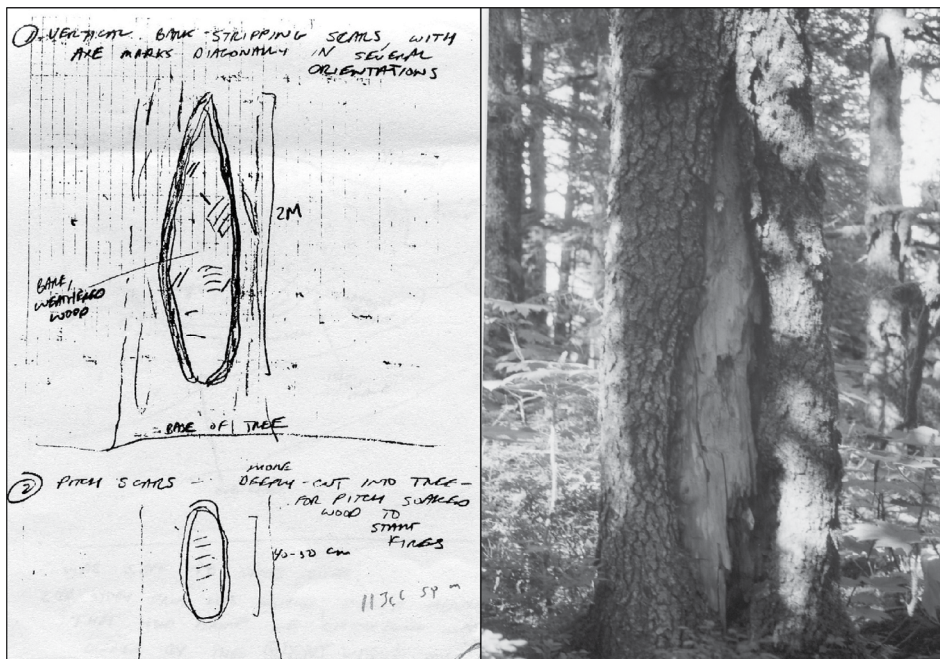 ① VERTICAL BARK-STRIPPING SCARS, WITH
AXE MARKS DIAGONALLY IN SEVERAL
ORIENTATIONS
2M
BARE,
WEATHERED
WOOD
BASE OF TREE
② PITCH SCARS - MORE
DEEPLY-CUT INTO TREE -
FOR PITCH SOAKED
WOOD TO
START
FIRES
40-50 cm